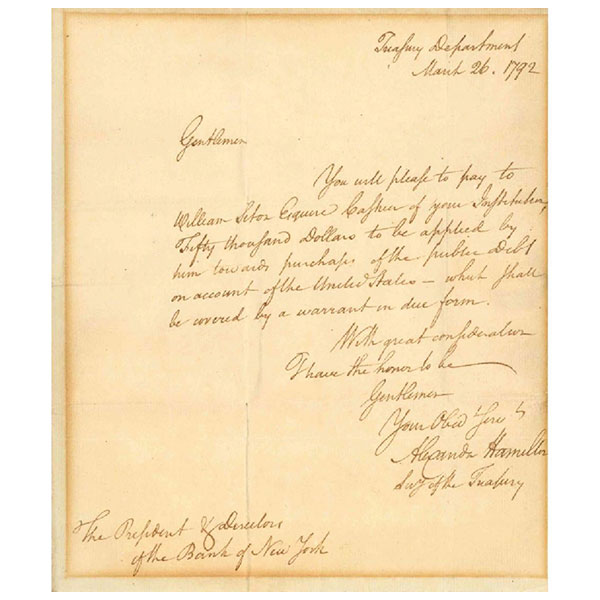 Treasury Department
March 26. 1792
Gentlemen
You will please to pay to
William Seton Esquire Cashier of your Institution,
Fifty thousand Dollars to be applied by
him towards purchases of the public Debt
on account of the United States – which shall
be covered by a warrant in due form.
With great consideration
I have the honor to be
Gentlemen
Your Obed Serv t
Alexander Hamilton
Secy of the Treasury
The President & Directors
of the Bank of New York